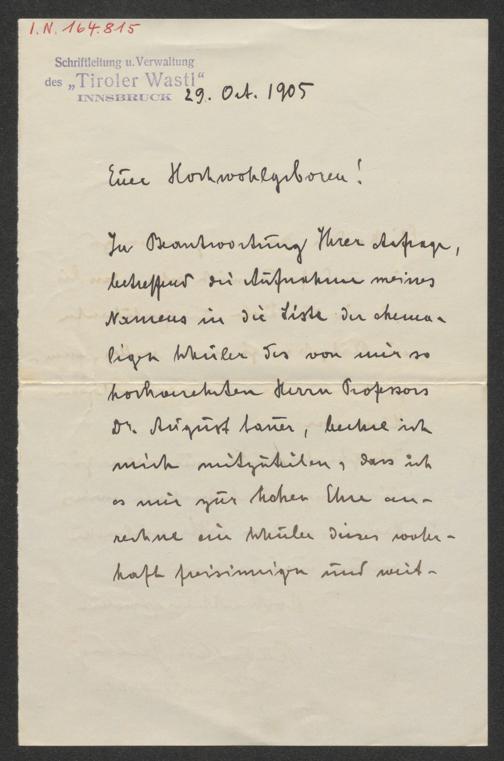 I.N. 164.815
Schriftleitung u. Verwaltung
des „Tiroler Wastl“
INNSBRUCK 29. Oct. 1905
Euer Hochwohlgeboren!
In Beantwortung Ihrer Anfrage,
betreffend die Aufnahme meines
Namens in die Liste der ehema-
ligen Schüler des von mir so
hochverehrten Herrn Professors
Dr. August Sauer, beehre ich
mich mitzuteilen, dass ich
es mir zur hohen Ehre an-
rechne ein Schüler dieses wahr-
haft freisinnigen und weit-